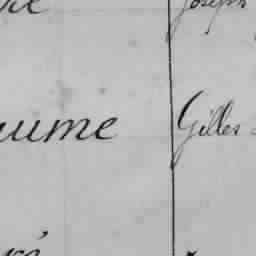 Joseph
ume Gilles